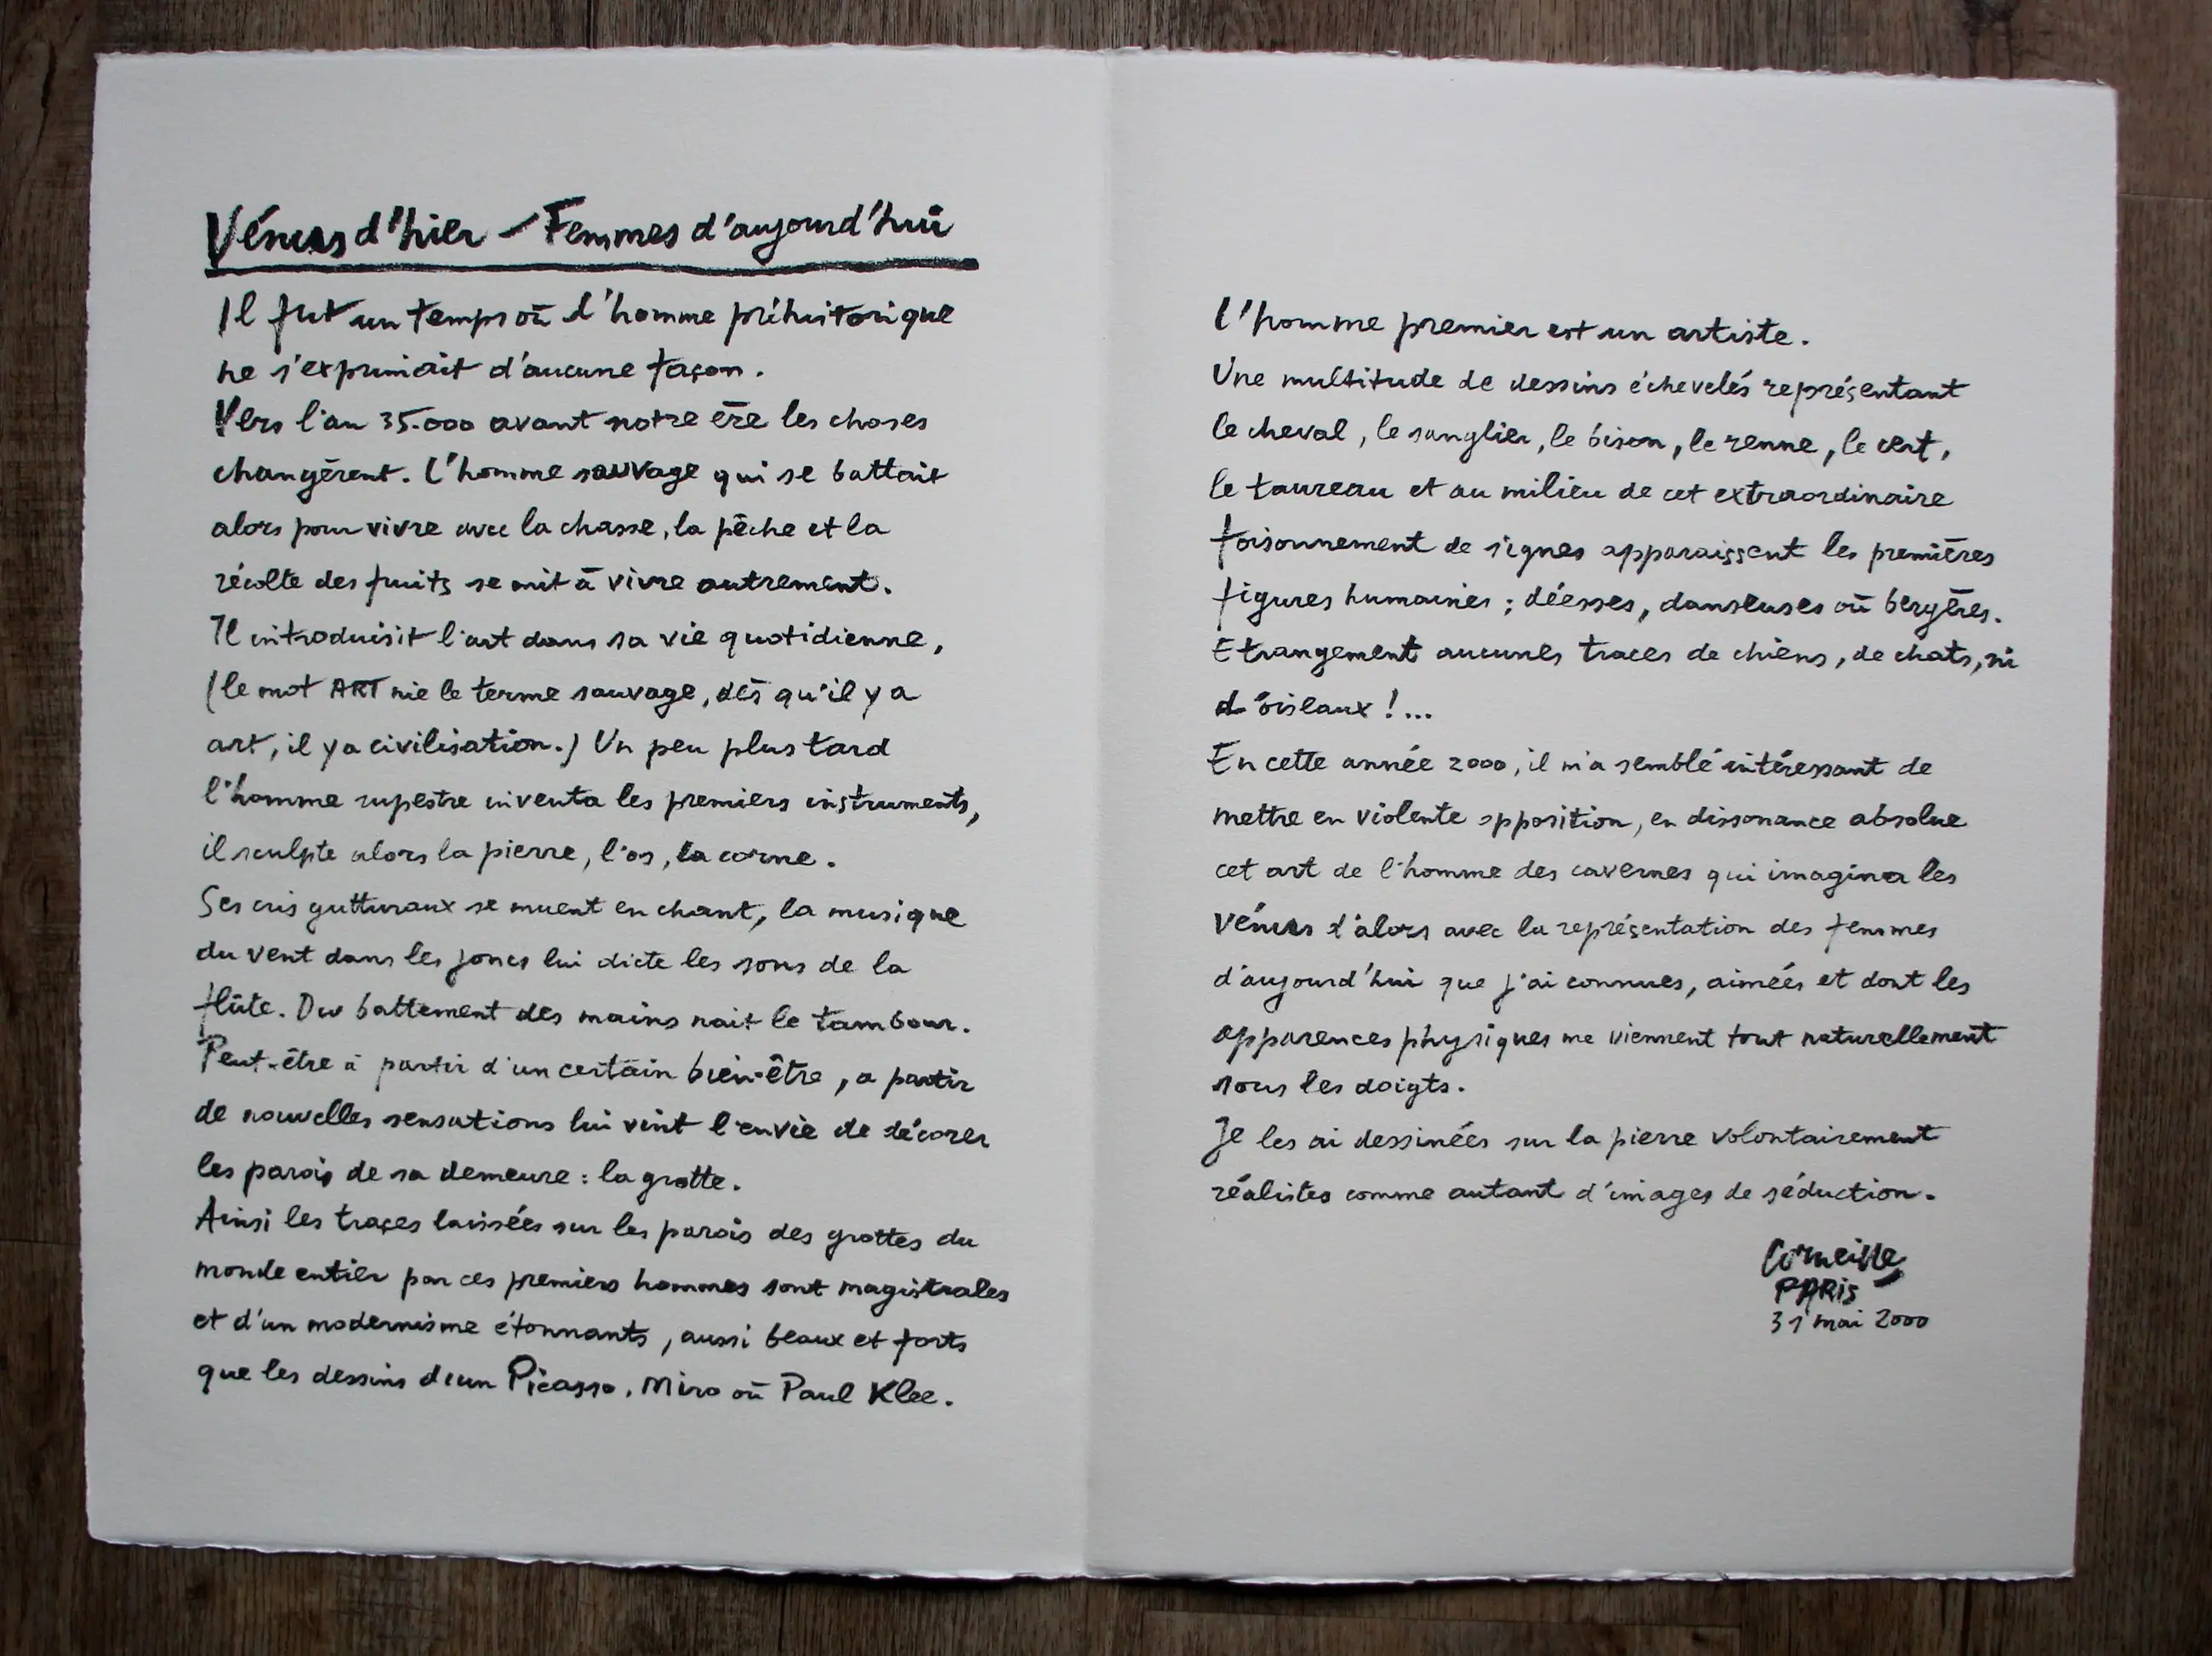 Vénus d'hier - Femmes d'aujourd'hui
Il fut un temps où l'homme préhistorique
ne s'exprimait d'aucune façon.
Vers l'an 35.000 avant notre ère les choses
changèrent. L'homme sauvage qui se battait
alors pour vivre avec la chasse, la pêche et la
récolte des fruits se mit à vivre autrement.
Il introduisit l'art dans sa vie quotidienne,
(le mot ART nie le terme sauvage, dès qu'il y a
art, il y a civilisation.) Un peu plus tard
l'homme rupestre inventa les premiers instruments,
il sculpte alors la pierre, l'os, la corne.
Ses cris gutturaux se muent en chant, la musique
du vent dans les joncs lui dicte les sons de la
flûte. Du battement des mains nait le tambour.
Peut-être à partir d'un certain bien-être, a partir
de nouvelles sensations lui vint l'envie de décorer
les parois de sa demeure : la grotte.
Ainsi les traces laissées sur les parois des grottes du
monde entier par ces premiers hommes sont magistrales
et d'un modernisme étonnants, aussi beaux et forts
que les dessins d'un Picasso, Miro où Paul Klee.
L'homme premier est un artiste.
Une multitude de dessins échevelés représentant
le cheval, le sanglier, le bison, le renne, le cerf,
le taureau et au milieu de cet extraordinaire
foisonnement de signes apparaissent les premières
figures humaines ; déesses, danseuses où bergères.
Etrangement aucunes traces de chiens, de chats, ni
d'oiseaux !...
En cette année 2000, il m'a semblé intéressant de
mettre en violente opposition, en dissonance absolue
cet art de l'homme des cavernes qui imagina les
Vénus d'alors avec la représentation des femmes
d'aujourd'hui que j'ai connues, aimées et dont les
apparences physiques me viennent tout naturellement
sous les doigts.
Je les ai dessinées sur la pierre volontairement
réalistes comme autant d'images de séduction.
Corneille
PARIS
31 mai 2000